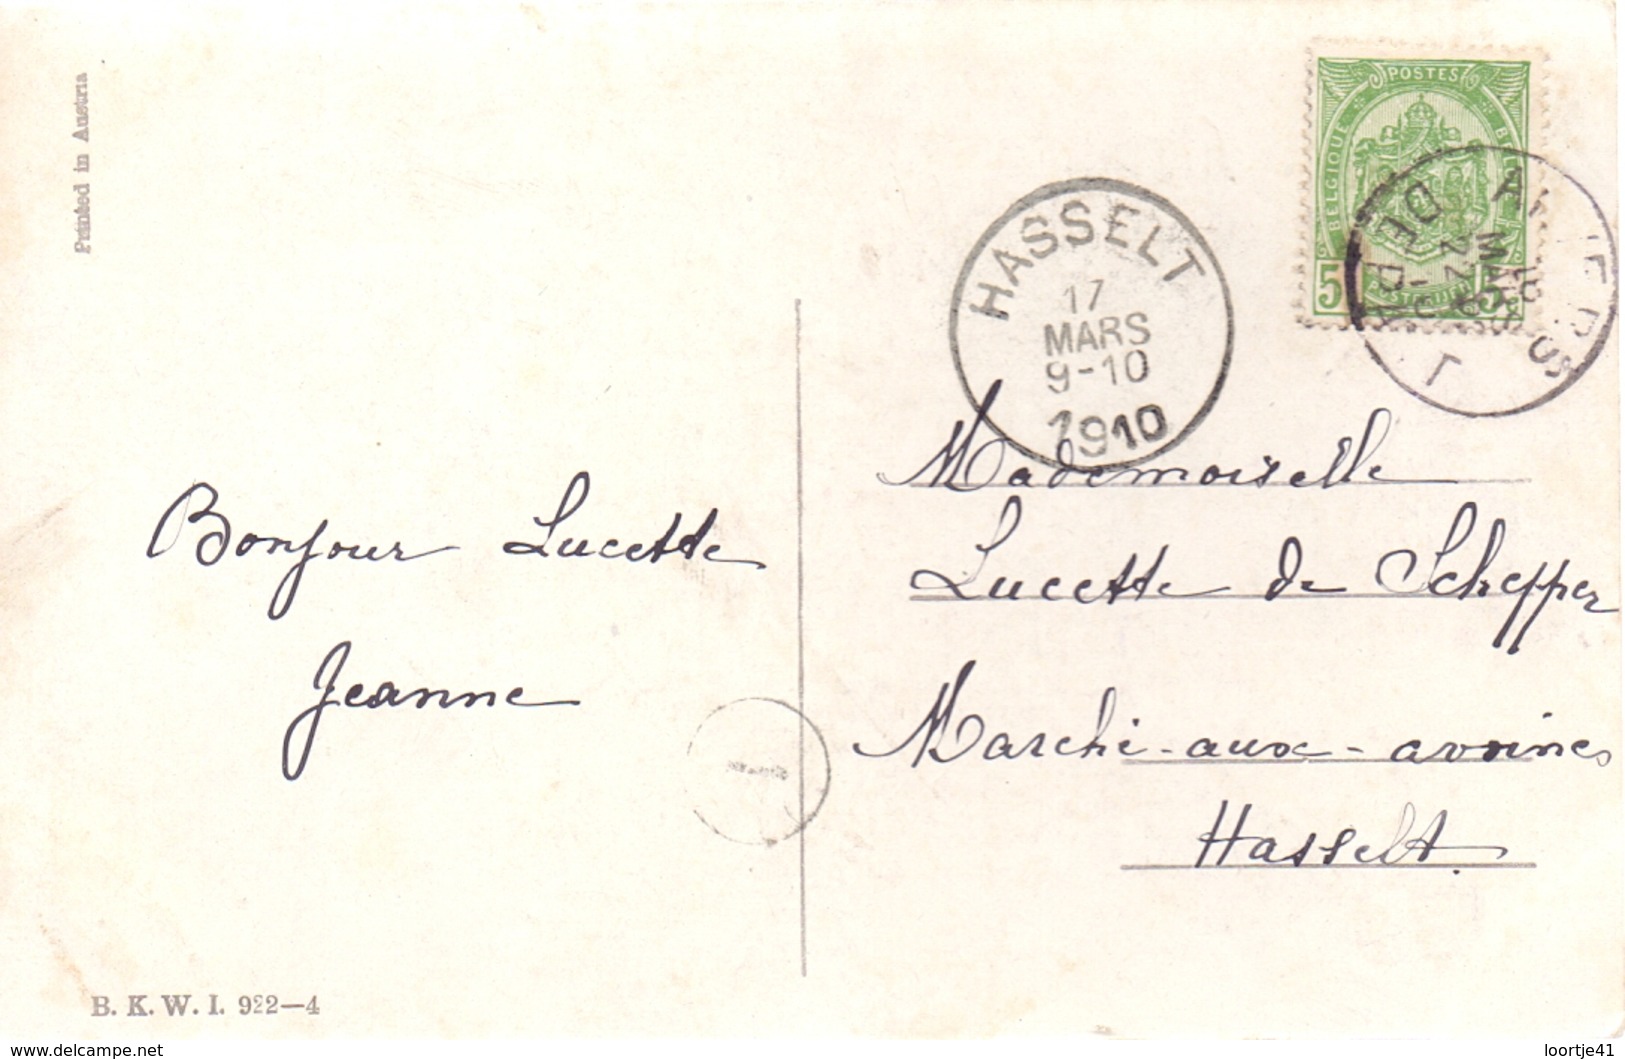 Printed in Austria
POSTES
BELGIQUE
5
HASSELT
17
MARS
9-10
1910
DEPART
Mademoiselle
Lucette de Schepper
Marché-aux-avoines
Hasselt
Bonjour Lucette
Jeanne
B. K. W. I. 922—4
www.delcampe.net
loortje41